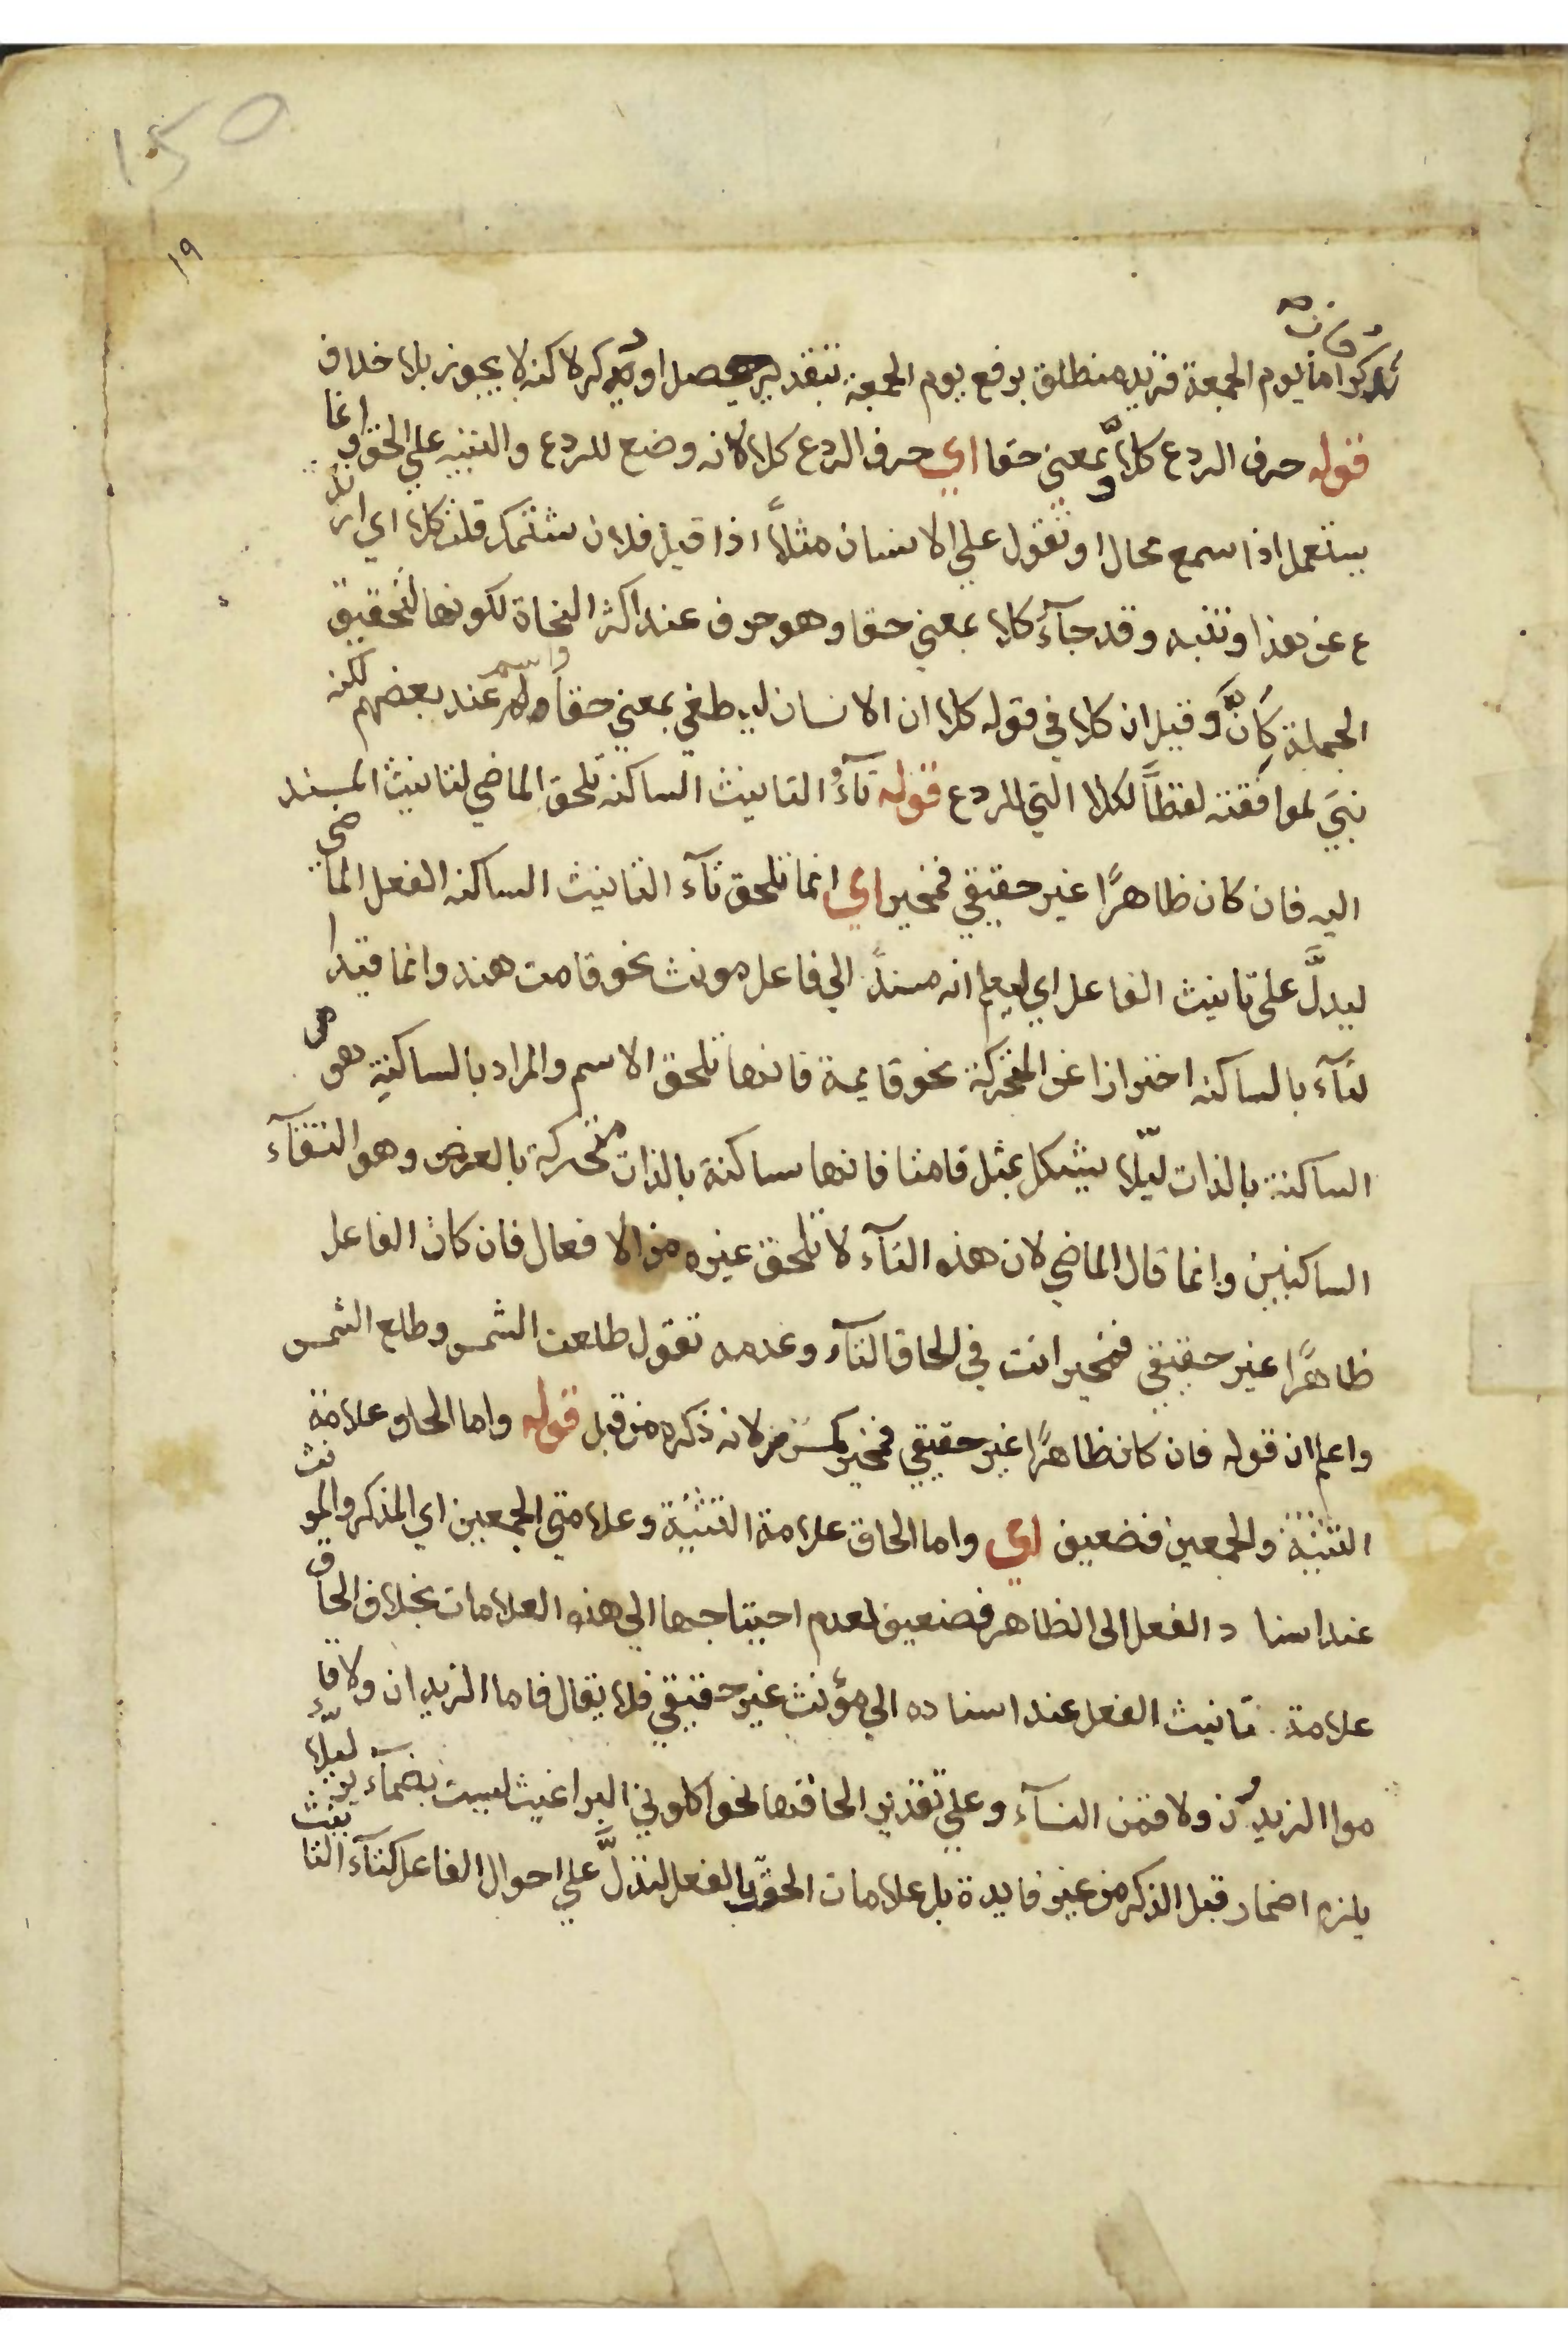 150
١٩
تذكر اما يوم الجمعة فزيد منطلق برفع يوم الجمعة بتقدير يحصل او يذكر لاكنه لا يجوز بلا خلاف
قوله حرف الردع كلا وبمعني حقا اي حرف الردع كلا لانه وضع للردع والتنبيه علي الخوف وانما
يستعمل اذا سمع محالا او تقول علي الانسان مثلاً اذا قيل فلان شتمك قلت كلا اي ارتد
ع عن هذا وتنبه وقد جآء كلا بمعني حقا وهو حرف عند اكثر النحاة لكونها لتحقيق
الجملة كاَنَّ وقيل ان كلا في قوله كلا ان الانسان ليطغي بمعني حقاً واسم عند بعضهم لكنه
بنيَ لموافقته لفظاً لكلا التي للردع قوله تآءُ التانيث الساكنه تلحق الماضي لتانيث المسند
اليه فان كان ظاهرًا غير حقيقي فمخير اي انما تلحق تآء التانيث الساكنه الفعل الماضى
ليدلَّ على تانيث الفاعل اي ليعلم انه مسند الي فاعل مونث نحو قامت هند وانما قيد ا
لتآء بالساكنه احترازا عن المتحركة نحو قايمة فانها تلحق الاسم والمراد بالساكنة هو
الساكنة بالذات ليّلا يشكل بمثل قامتا فانها ساكنة بالذات متحركة بالعرض وهو التقآء
الساكنين وانما قال الماضي لان هذه التآء لا تلحق غيره من الافعال فان كان الفاعل
ظاهرًا غير حقيقي فمخير انت في الحاق التآء وعدمه تقول طلعت الشمس وطلع الشمس
واعلم ان قوله فان كان ظاهرًا غير حقيقي فمخير لانه ذكره من قبل قوله واما الحاق علامة
التثنية والجمعين فضعيف اي واما الحاق علامة التثنية وعلامتي الجمعين اي المذكر والمونث
عند اسناد الفعل الى الظاهر فضعيف لعدم احتياجها الي هذه العلامات بخلاف الحاق
علامة تانيث الفعل عند اسناده الي مؤنث غير حقيقي فلا يقال قاما الزيدان ولا قا
موا الزيدون ولا قمن النسآء وعلي تقدير الحاقها نحو اكلوني البراغيث ليست بضمآير ليّلا
يلزم اضمار قبل الذكر من غير فايدة بل علامات الحق بالفعل لتدلَّ علي احوال الفاعل كتآء التانيث